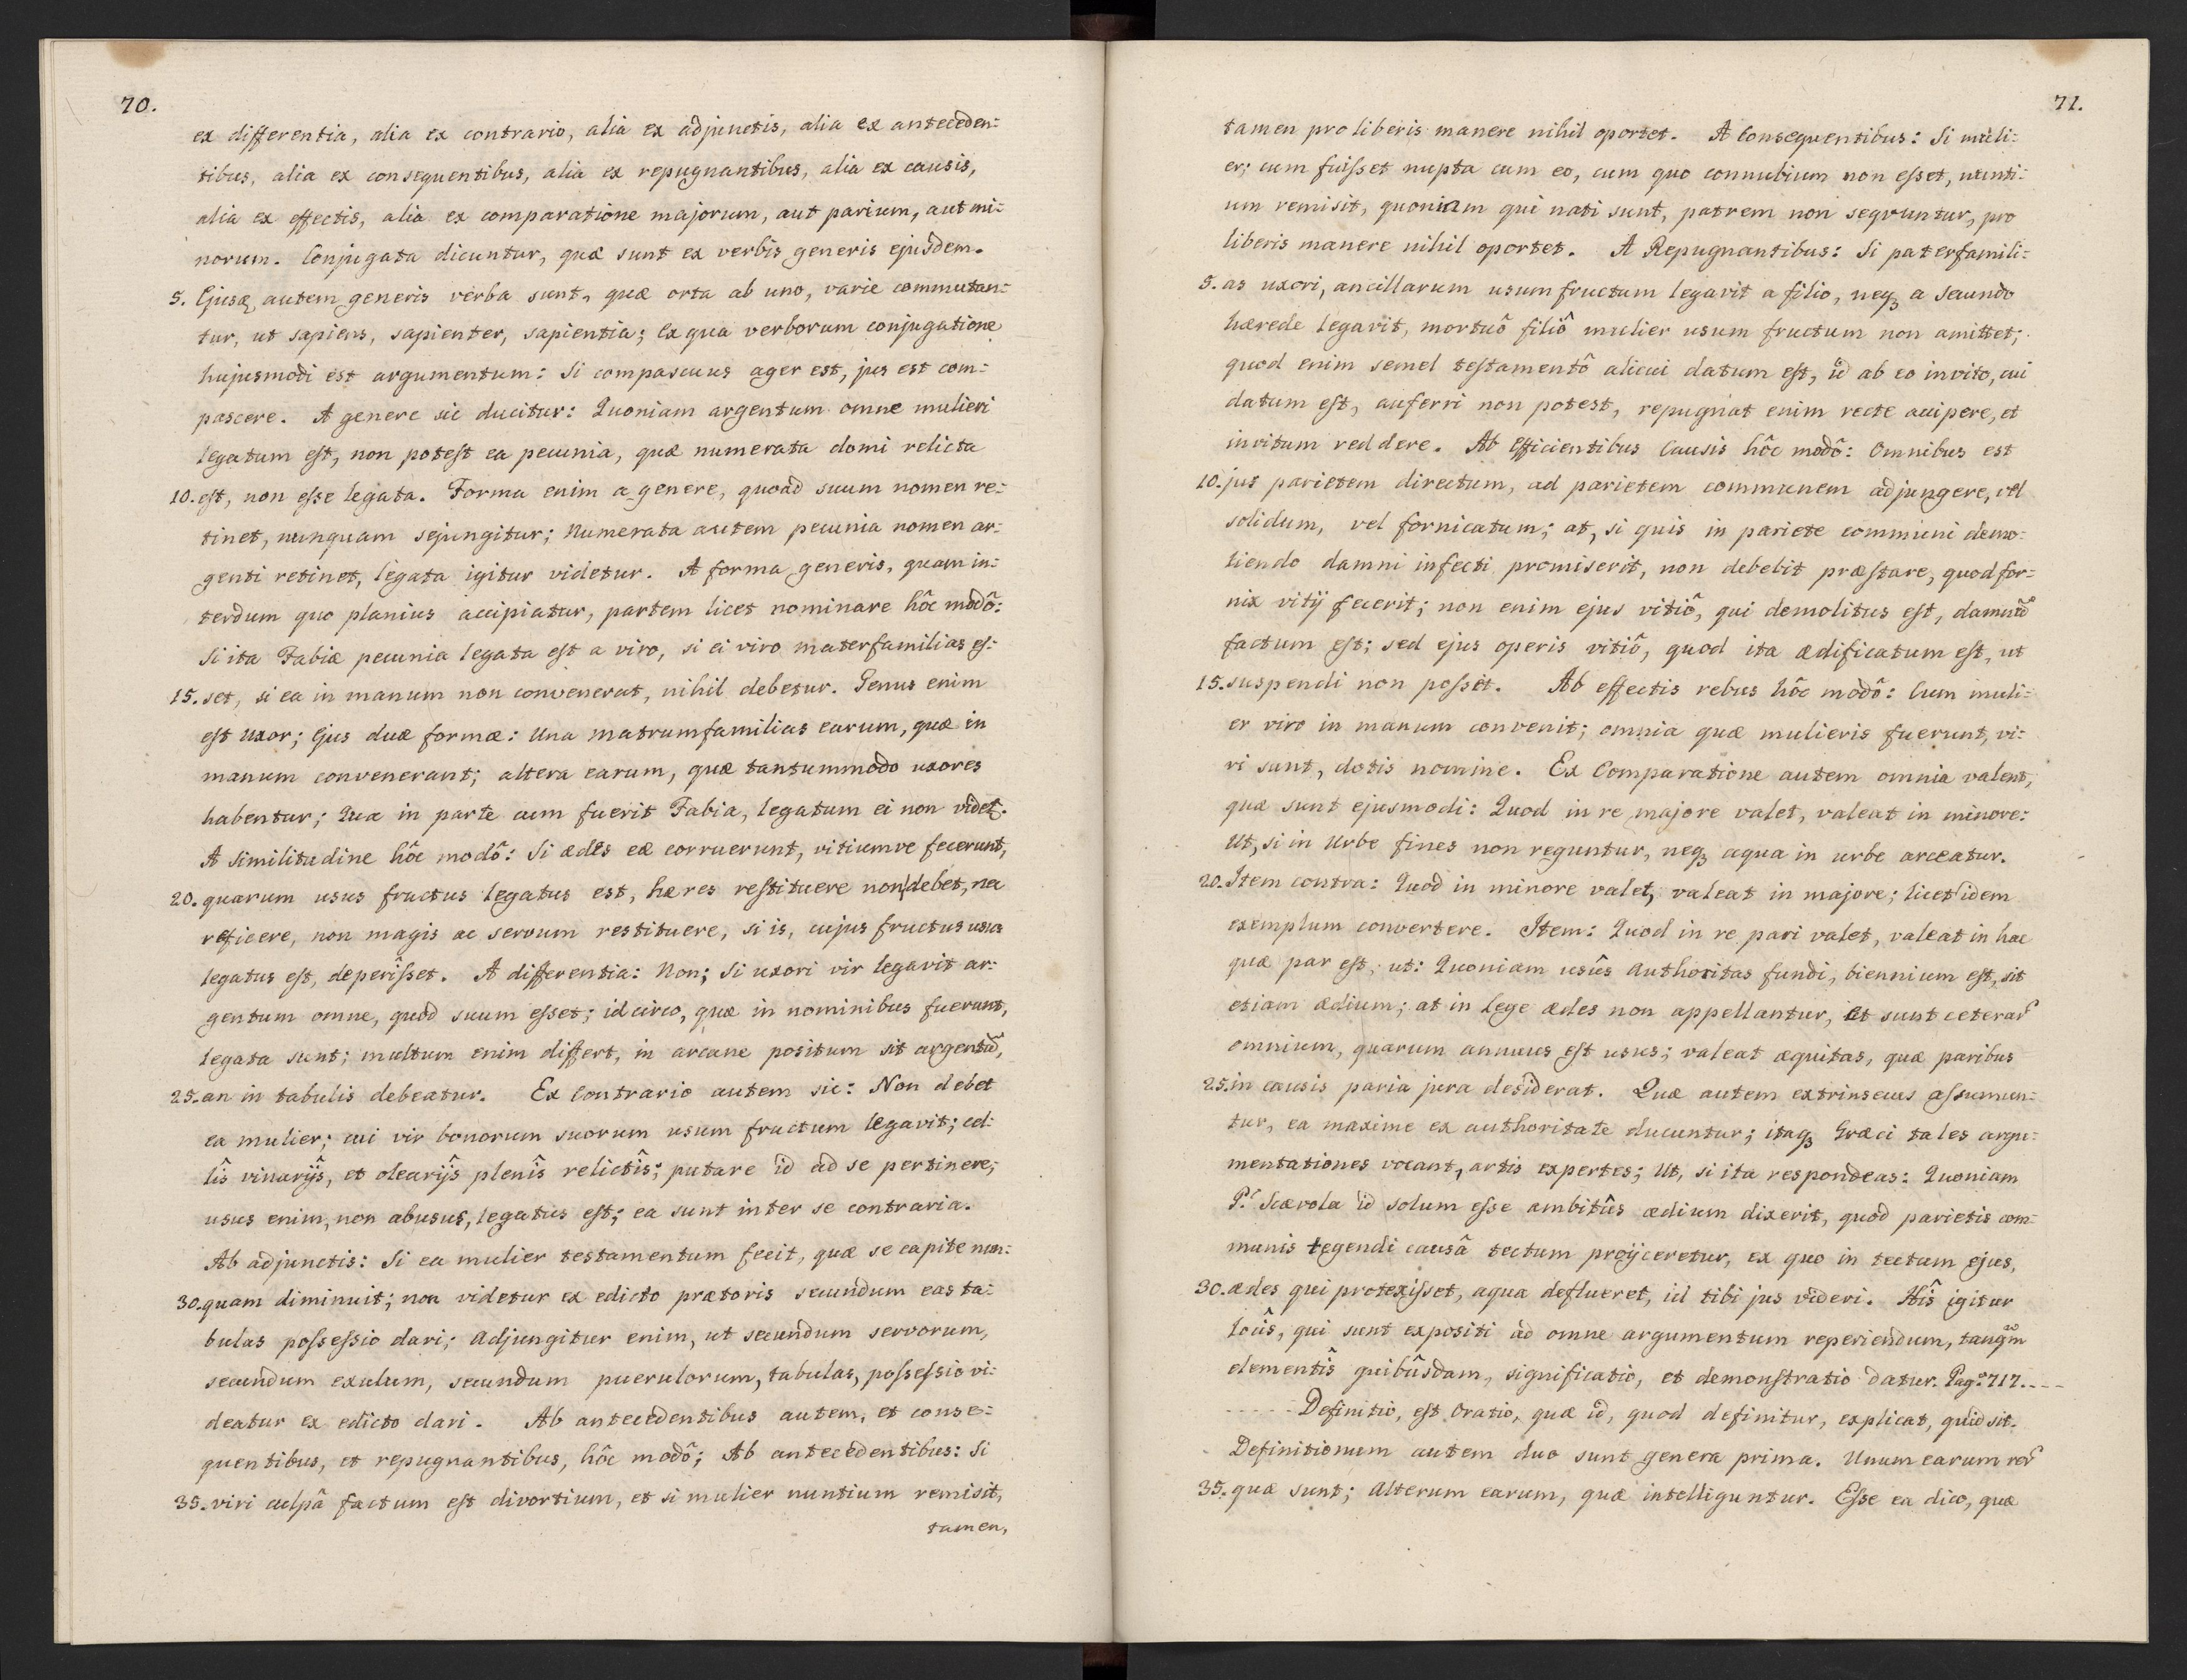 70.
ex differentia, alia ex contrario, alia ex adjunctis, alia ex anteceden:
tibus, alia ex consequentibus, alia ex repugnantibus, alia ex causis,
alia ex effectis, alia ex comparatione majorum, aut parium, aut mi:
norum. Conjugata dicuntur, quæ sunt ex verbis generis ejusdem.
5. autem generis verba sunt, quæ orta ab uno, varie commutan:
tur, ut sapiens, sapienter, sapientia; Ex qua verborum conjugatione
hujusmodi est argumentum: Si compascuus ager est, jus est com:
pascere. A genere sic ducitur: Quoniam argentum omne mulieri
legatum est, non potest ea pecunia, quæ numerata domi relicta
10. est, non esse legata. Forma enim a genere, quoad suum nomen re:
tinet, nunquam sejungitur; Numerata autem pecunia nomen ar:
genti retinet, legata igitur videtur. A forma generis, quam in:
terdum quo planius accipiatur, partem licet nominare hôc modô:
Si ita Fabiæ pecunia legata est a viro, si ei viro materfamilias es:
15. set, si ea in manum non convenerat, nihil debetur. Genus enim
est uxor; Ejus duæ formæ: Una matrumfamilias earum, quæ in
manum convenerant; altera earum, quæ tantummodo uxores
habentur; Qua in parte cum fuerit Fabia, legatum ei non videt.
A similitudine hôc modô: Si ædes eæ corruerunt, vitiumve fecerunt,
20. quarum usus fructus legatus est, hæres restituere non debet, nec
reficere, non magis ac servum restituere, si is, cujus fructus usus
legatus est, deperîsset. A differentia: Non; Si uxori vir legavit ar:
gentum omne, quod suum esset; idcirco, quæ in nominibus fuerunt,
legata sunt; multum enim differt, in arcane positum sit argentũ,
25. an in tabulis debeatur. Ex Contrario autem sic: Non debet
ea mulier; cui vir bonorum suorum usum fructum legavit; cel:
lîs vinarijs, et olearijs plenîs relictîs; putare id ad se pertinere;
usus enim, non abusus, legatus est; ea sunt inter se contraria.
Ab adjunctis: Si ea mulier testamentum fecit, quæ se capite nun:
30. quam diminuit; non videtur ex edicto prætoris secundum eas ta:
bulas possessio dari; Adjungitur enim, ut secundum servorum,
secundum exulum, secundum puerulorum, tabulas, possessio vi:
deatur ex edicto dari. Ab antecedentibus autem, et conse:
quentibus, et repugnantibus, hôc modô; Ab antecedentibus: Si
35. viri culpâ factum est divortium, et si mulier nuntium remisit,
tamen,
71.
tamen pro liberis manere nihil oportet. A Consequentibus: Si muli:
er; cum fuisset nupta cum eo, cum quo connubium non esset, nunti:
um remisit, quoniam qui nati sunt, patrem non sequuntur, pro
liberis manere nihil oportet. A Repugnantibus: Si paterfamili:
5. as uxori, ancillarum usum fructum legavit a filio, neqꝫ a secundo
hærede legavit, mortuô filiô mulier usum fructum non amittet;
quod enim semel testamentô alicui datum est, id ab eo invito, cui
datum est, auferri non potest, repugnat enim recte accipere, et
invitum reddere. Ab Efficientibus Causis hôc modô: Omnibus est
10. jus parietem directum, ad parietem communem adjungere, vel
solidum, vel fornicatum; at, si quis in pariete communi demo:
liendo damni infecti promiserit, non debebit præstare, quod for:
nix vitij fecerit; non enim ejus vitiô, qui demolitus est, damnũ
factum est; sed ejus operis vitiô, quod ita ædificatum est, ut
15. suspendi non posset. Ab effectis rebus hôc modô: Cum muli:
er viro in manum convenit; omnia quæ mulieris fuerunt, vi:
ri sunt, dotis nomine. Ex Comparatione autem omnia valent,
quæ sunt ejusmodi: Quod in re majore valet, valeat in minore:
Ut, si in Urbe fines non reguntur, neqꝫ aqua in urbe arceatur.
20. Item contra: Quod in minore valet, valeat in majore; licet idem
exemplum convertere. Item: Quod in re pari valet, valeat in hac
quæ par est, ut: Quoniam usûs Authoritas fundi, biennium est, sit
etiam ædium; at in Lege ædes non appellantur, et sunt ceterar
omnium, quarum annuus est usus; valeat æquitas, quæ paribus
25. in causis paria jura desiderat. Quæ autem extrinsecus assumun:
tur, ea maxime ex authoritate ducuntur; itaqꝫ Græci tales argu:
mentationes vocant, artis expertes; Ut, si ita respondeas: Quoniam
P. Scævola id solum esse ambitûs ædium dixerit, quod parietis com:
munis tegendi causâ tectum projiceretur, ex quo in tectum ejus,
30. ædes qui protexisset, aqua deflueret, id tibi jus videri. Hîs igitur
locîs, qui sunt expositi ad omne argumentum reperiendum, tanqm
elementîs quibûsdam, significatio, et demonstratio datur. Pag. 717.----
----- Definitio, est Oratio, quæ id, quod definitur, explicat, quid sit.
Definitionum autem duo sunt genera prima. Unum earum rer
35. quæ sunt; Alterum earum, quæ intelliguntur. Esse ea dico, quæ